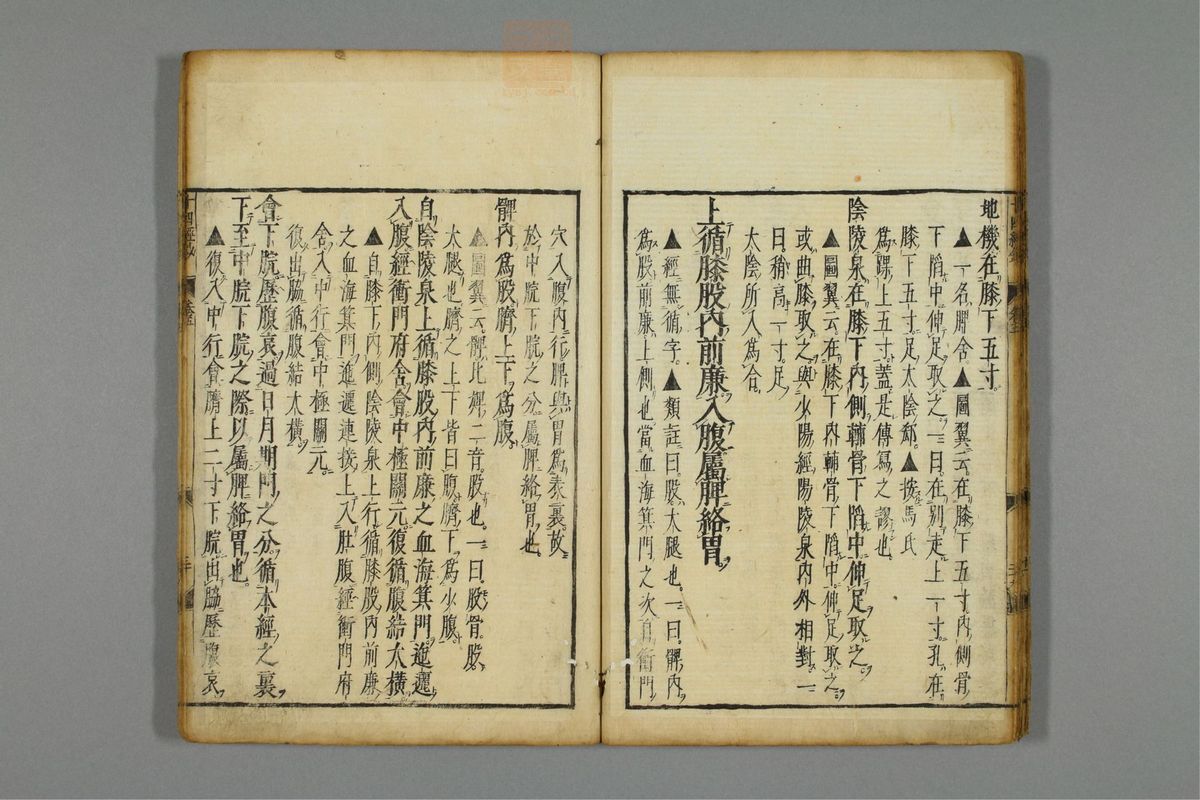 地機在膝下五寸
▲一名脾舍▲圖翼云在膝下五寸內側骨
下陷中伸足取之一曰在別走上一寸孔在
膝下五寸足太陰郄▲按馬氏
為踝上五寸蓋是傳寫之謬也
陰陵泉在膝下內側輔骨下陷中伸足取之
▲圖翼云在膝下內輔骨下陷中伸足取之
或曲膝取之與少陽經陽陵泉內外相對一
曰稍高一寸足
太陰所入為合
上循膝股內前廉入腹屬脾絡胃
▲經無循字▲類註曰股大腿也一曰髀內
為股前廉上側也當血海箕門之次自衝門
穴入腹內行脾與胃為表裏故
於中脘下脘之分屬脾絡胃也
髀內為股臍上下為腹
▲圖翼云髀比婢二音股也一曰股骨股
大腿也臍之上下皆曰腹臍下為少腹
自陰陵泉上循膝股內前廉之血海箕門迤邐
入腹經衝門府舍會中極關元復循腹結大橫
▲自膝下內側陰陵泉上行循膝股內前廉
之血海箕門迤邐連接上入肚腹經衝門府
舍入中行會中極關元
復出脇循腹結大橫
會下脘歷腹哀過日月期門之分循本經之裏
下至中脘下脘之際以屬脾絡胃也
▲復入中行會臍上二寸下脘出脇歷腹哀